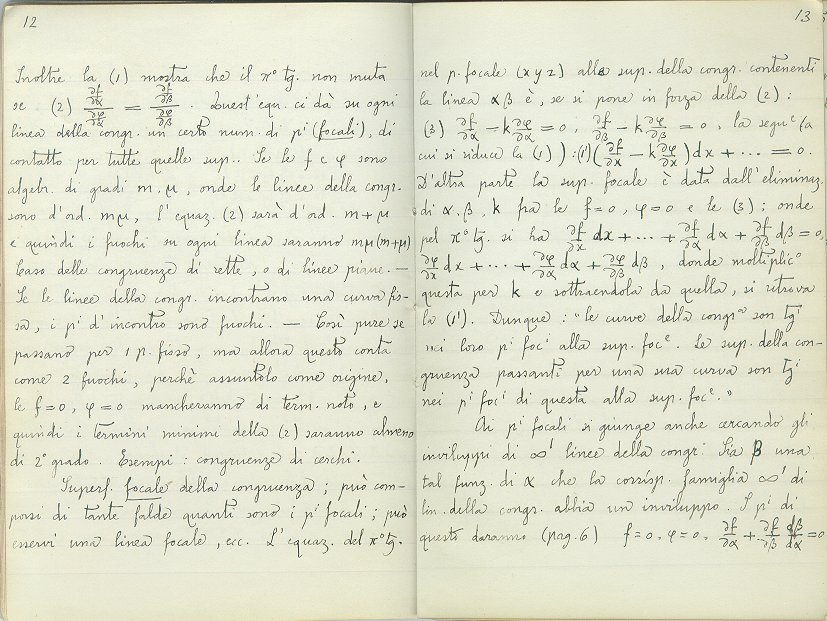 12
Inoltre la (1) mostra che il π° tg. non muta
se (2) ∂f/∂α / ∂φ/∂α = ∂f/∂β / ∂φ/∂β . Quest'equ. ci dà su ogni
linea della congr. un certo num. di pⁱ (focali), di
contatto per tutte quelle sup.. Se le f e φ sono
algebr. di gradi m, μ, onde le linee della congr.
sono d'ord. mμ, l'equaz. (2) sarà d'ord. m+μ
e quindi i fuochi su ogni linea saranno mμ(m+μ)
Caso delle congruenze di rette, o di linee piane. —
Se le linee della congr. incontrano una curva fis-
sa, i pⁱ d'incontro sono fuochi. — Così pure se
passano per 1 p. fisso, ma allora questo conta
come 2 fuochi, perchè assuntolo come origine,
le f=0, φ=0 mancheranno di term. noto, e
quindi i termini minimi della (2) saranno almeno
di 2° grado. Esempi: congruenze di cerchi.
Superf. focale della congruenza; può com-
porsi di tante falde quanti sono i pⁱ focali; può
esservi una linea focale, ecc. L'equaz. del π° tg.
13
nel p. focale (xyz) alla sup. della congr. contenenti
la linea αβ è, se si pone in forza della (2).
(3) ∂f/∂α − k ∂φ/∂α = 0, ∂f/∂β − k ∂φ/∂β = 0, la segᵘᵉ (a
cui si riduce la (1)): (1') (∂f/∂x − k ∂φ/∂x) dx + ··· = 0.
D'altra parte la sup. focale è data dall'eliminaz.
di α, β, k fra le f=0, φ=0 e le (3); onde
pel π° tg. si ha ∂f/∂x dx + ··· + ∂f/∂α dα + ∂f/∂β dβ = 0,
∂φ/∂x dx + ··· + ∂φ/∂α dα + ∂φ/∂β dβ, donde moltiplicᵒ
questa per k e sottraendola da quella, si ritrova
la (1'). Dunque: "le curve della congrᵃ son tgⁱ
nei loro pⁱ focⁱ alla sup. focᵉ. Le sup. della con-
gruenza passanti per una sua curva son tgⁱ
nei pⁱ focⁱ di questa alla sup. focᵉ."
Ai pⁱ focali si giunge anche cercando gli
inviluppi di ∞¹ linee della congr. Sia β una
tal funz. di α che la corrisp. famiglia ∞¹ di
lin. della congr. abbia un inviluppo. I pⁱ di
questo daranno (pag. 6) f=0, φ=0, ∂f/∂α + ∂f/∂β dβ/dα = 0